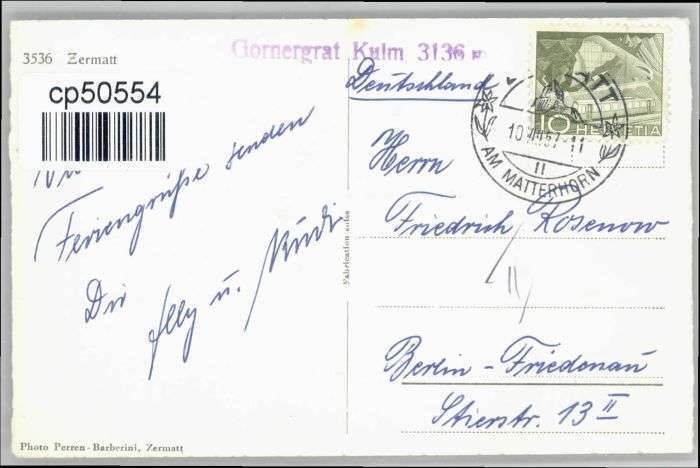 3536 Zermatt
cp50554
Feriengrüße senden
Dir
Elly u. Rudi
Photo Perren-Barberini, Zermatt
Fabrication suisse
Gornergrat Kulm 3136 m
10 HELVETIA
TT
10
57-11
II
AM MATTERHORN
Deutschland
Herrn
Friedrich Rosenow
Berlin-Friedenau
Stierstr. 13 II